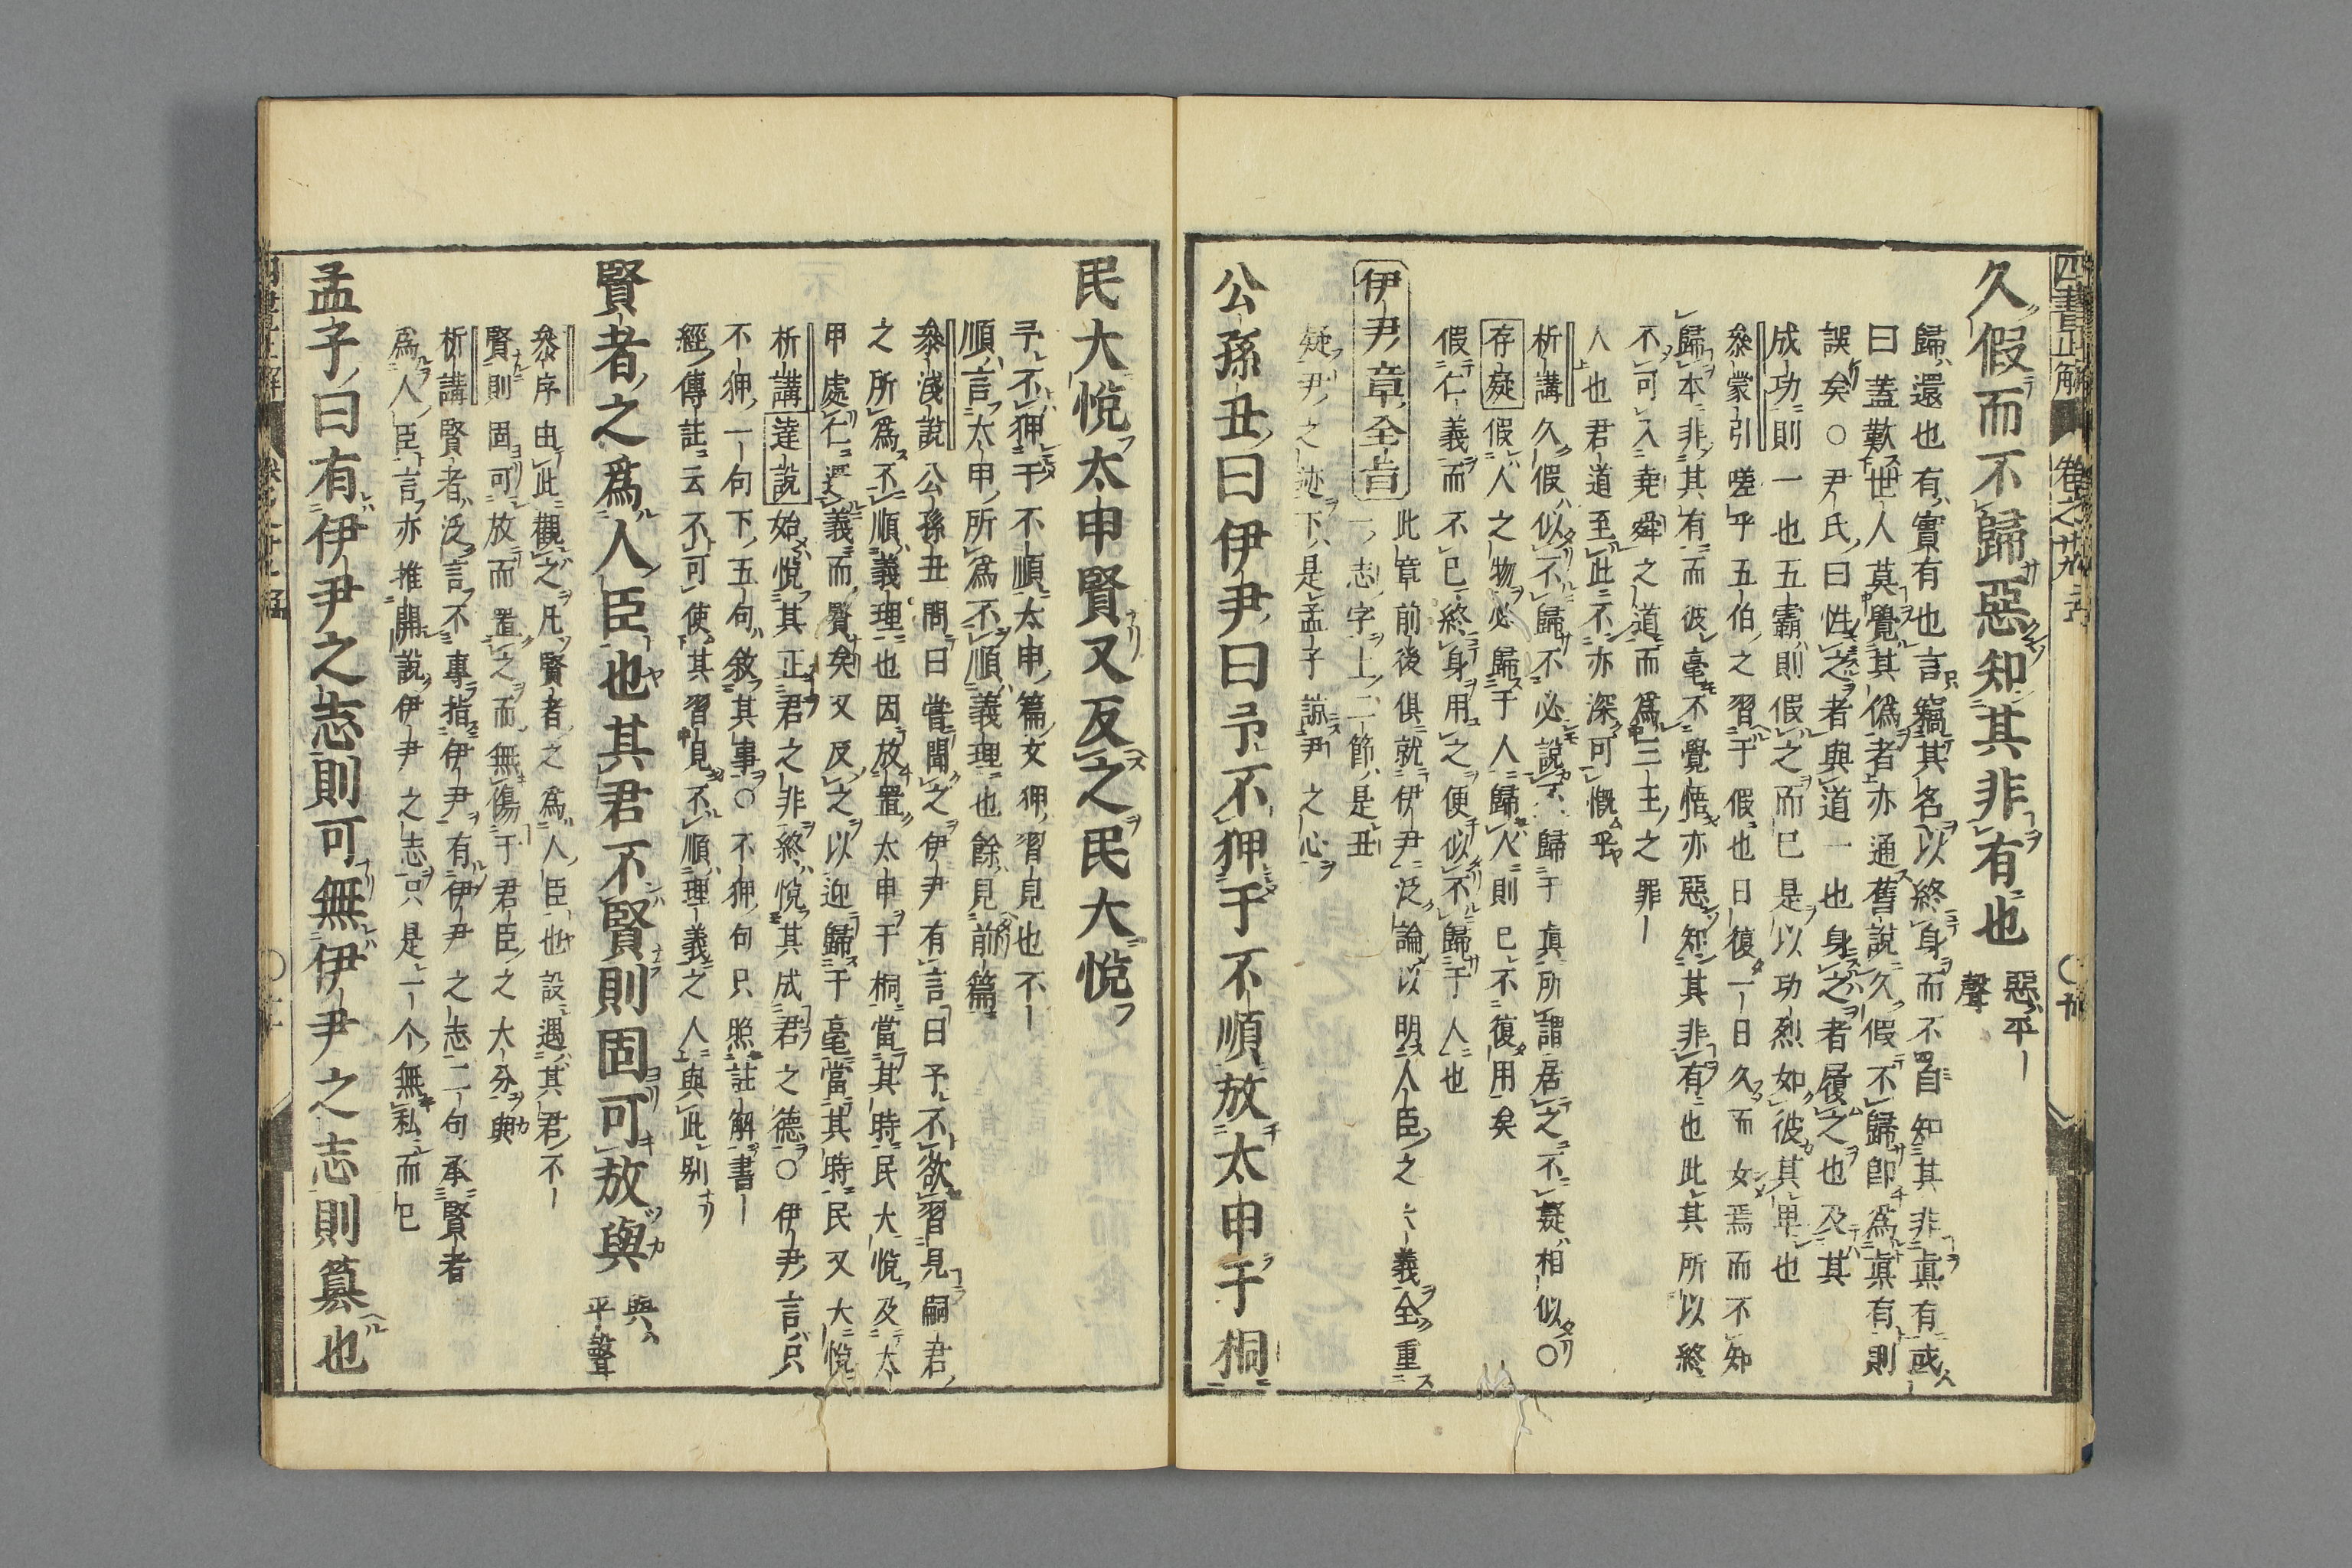 四書正解
卷之廿九
久假而不歸惡知其非有也
惡平
聲
歸還也有實有也言竊其名以終身而不自知其非眞有或
曰蓋歎世人莫覺其僞者亦通舊說久假不歸卽爲眞有則
誤矣○尹氏曰性之者與道一也身之者履之也及其
成功則一也五霸則假之而已是以功烈如彼其卑也
參蒙引嗟乎五伯之習于假也日復一日久而女焉而不知
歸本非其有而彼毫不覺悟亦惡知其非有也此其所以終
不可入堯舜之道而爲三王之罪
人也君道至此不亦深可慨乎
析講久假似不歸不必說歸于眞所謂居之不疑相似○
存疑假人之物必歸于人歸人則已不復用矣
假仁義而不已終身用之便似不歸于人也
伊尹章全旨此章前後俱就伊尹泛論以明人臣之義全重
一志字上二節是丑
疑尹之迹下是孟子諒尹之心
公孫丑曰伊尹曰予不狎于不順放太甲于桐
民大悅太甲賢又反之民大悅
予不狎于不順太甲篇文狎習見也不
順言太甲所爲不順義理也餘見前篇
參淺說公孫丑問曰嘗聞之伊尹有言曰予不欲習見嗣君
之所爲不順義理也因放置太甲于桐當其時民大悅及太
甲處仁遷義而賢矣又反之以迎歸于亳當其時民又大悅
析講達說始悅其正君之非終悅其成君之德○伊尹言只
不狎一句下五句敘其事○不狎句只照註解書
經傳註云不可使其習見不順理義之人與此別
賢者之爲人臣也其君不賢則固可放與
與
平聲
參序由此觀之凡賢者之爲人臣也設遇其君不
賢則固可放而置之而無傷于君臣之大分與
析講賢者泛言不專指伊尹有伊尹之志二句承賢者
爲人臣言亦推開說伊尹之志只是一个無私而已
孟子曰有伊尹之志則可無伊尹之志則篡也